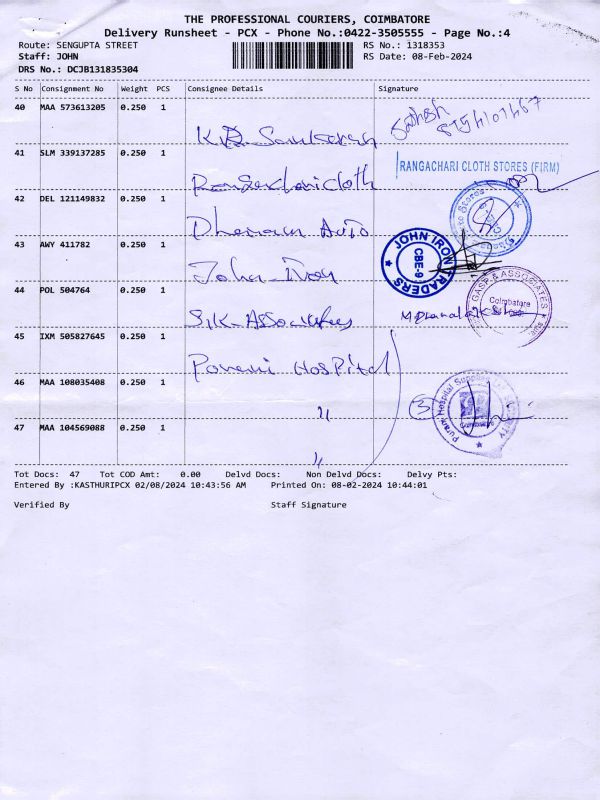 THE PROFESSIONAL COURIERS, COIMBATORE
Delivery Runsheet - PCX - Phone No.:0422-3505555 - Page No.:4
Route: SENGUPTA STREET RS No.: 1318353
Staff: JOHN RS Date: 08-Feb-2024
DRS No.: DCJB131835304
S No Consignment No Weight PCS Consignee Details Signature
40 MAA 573613205 0.250 1
Sathish
41 SLM 339137285 0.250 1
RANGACHARI CLOTH STORES (FIRM)
42 DEL 121149832 0.250 1
Auto
43 AWY 411782 0.250 1
John Iron
JOHN IRON TRADERS
CBE-9
44 POL 504764 0.250 1
Associates
GASP & ASSOCIATES
Coimbatore
45 IXM 505827645 0.250 1
Hospital
46 MAA 108035408 0.250 1
〃
3
Hospital
SECURITY
47 MAA 104569088 0.250 1
〃
Tot Docs: 47 Tot COD Amt: 0.00 Delvd Docs: Non Delvd Docs: Delvy Pts:
Entered By :KASTHURIPCX 02/08/2024 10:43:56 AM Printed On: 08-02-2024 10:44:01
Verified By Staff Signature